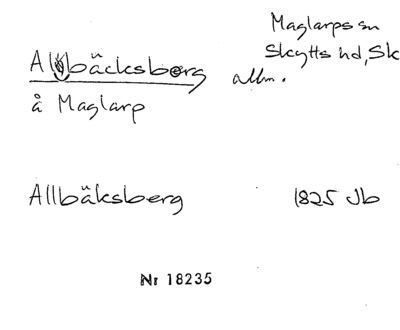 Maglarps sn
Skytts hd, Sk
Allbäcksberg allm.
å Maglarp
Allbäksberg 1825 Jb
Nr 18235